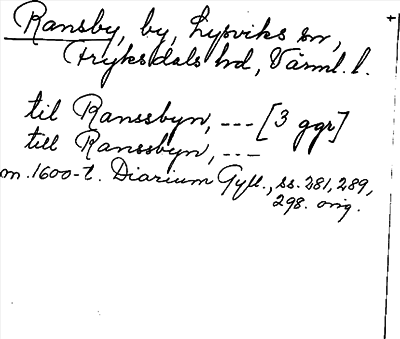 Ransby, by, Lysviks sn,
Fryksdals hd, Värml. l.
til Ranssbyn, --- [3 ggr]
till Ranssbyn, ---
m. 1600-t. Diarium Gyll., ss. 281, 289,
298. orig.